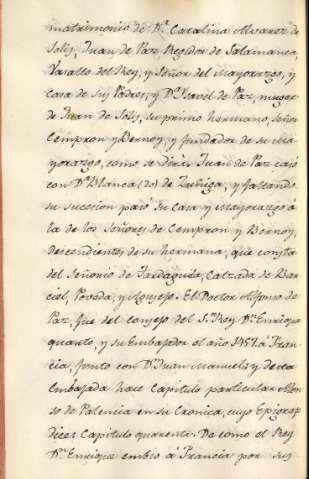 matrimonio de D.ª Catalina Alvarez de
Solis, Juan de Paz Regidor de Salamanca,
Vasallo del Rey, y Señor del Mayorazgo, y
Casa de sus Padres, y D.ª Ysavel de Paz, muger
de Juan de Solis, su primo hermano, Señor
Cempron y Bernoy, y fundador de su Ma
yorazgo, como se dirá. Juan de Paz casó
con D.ª Blanca (20) de Zuñiga, y faltando
su sucesion pasó su Casa y Mayorazgo á
la de los Señores de Cempron y Bernoy,
descendientes de su hermana, que consta
del Señorio de Tardaguila, Calzada de
ciel, Posada, y. El Doctor Alfonso de
Paz, fue del consejo del S.r Rey D.n Enrique
quarto, y su Embajador el año 1457. á Fran
cia, junto con D.n Juan Manuel; y de esta
Embajada hace Capitulo particular Alon
so de Palencia en su Cronica, cuyo Epigraf
dice: Capitulo quarenta. De como el Rey
D.n Enrique embio á Francia por sus